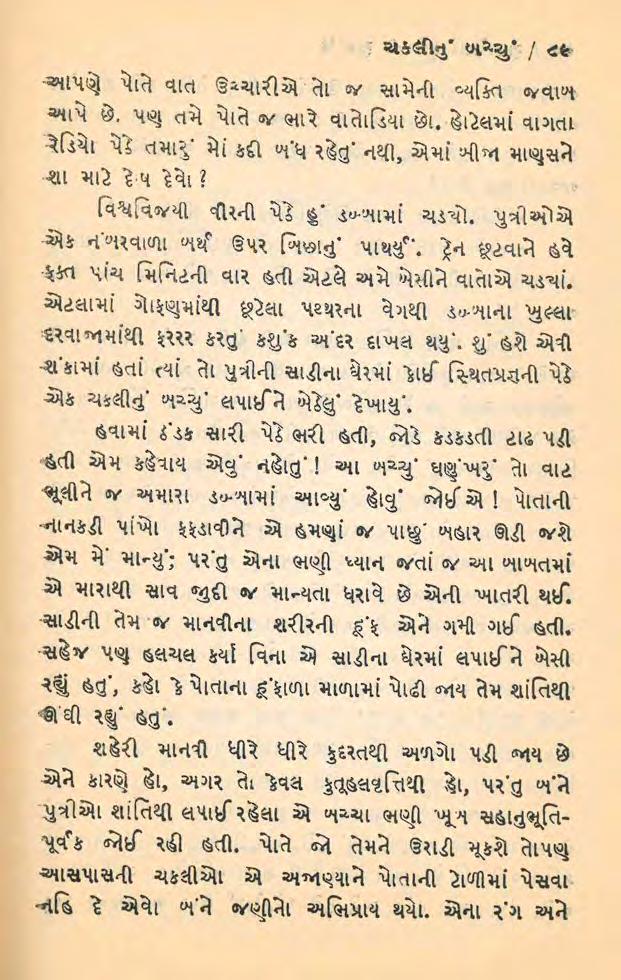 ચકલીનું બચ્ચું / ૮૯
આપણે પોતે વાત ઉચ્ચારીએ તો જ સામેની વ્યક્તિ જવાબ
આપે છે. પણ તમે પોતે જ ભારે વાતોડિયા છો. હોટેલમાં વાગતા
રેડિયો પેઠે તમારું મોં કદી બંધ રહેતું નથી, એમાં બીજા માણસને
શા માટે દોષ દેવો ?
વિશ્વવિજયી વીરની પેઠે હું ડબ્બામાં ચડ્યો. પુત્રીઓએ
એક નંબરવાળા બર્થ ઉપર બિછાનું પાથર્યું. ટ્રેન છૂટવાને હવે
ફક્ત પાંચ મિનિટની વાર હતી એટલે અમે બેસીને વાતોએ ચડ્યાં.
એટલામાં ગોફણમાંથી છૂટેલા પથ્થરના વેગથી ડબ્બાના ખુલ્લા
દરવાજામાંથી ફરરર કરતું કશુંક અંદર દાખલ થયું. શું હશે એવી
શંકામાં હતાં ત્યાં તો પુત્રીની સાડીના ઘેરમાં કોઈ સ્થિતપ્રજ્ઞની પેઠે
એક ચકલીનું બચ્ચું લપાઈને બેઠેલું દેખાયું.
હવામાં ઠંડક સારી પેઠે ભરી હતી, જોકે કડકડતી ટાઢ પડી
હતી એમ કહેવાય એવું નહોતું ! આ બચ્ચું ઘણુંખરું તો વાટ
ભૂલીને જ અમારા ડબ્બામાં આવ્યું હોવું જોઈએ ! પોતાની
નાનકડી પાંખો ફફડાવીને એ હમણાં જ પાછું બહાર ઊડી જશે
એમ મેં માન્યું; પરંતુ એના ભણી ધ્યાન જતાં જ આ બાબતમાં
એ મારાથી સાવ જુદી જ માન્યતા ધરાવે છે એની ખાતરી થઈ.
સાડીની તેમ જ માનવીના શરીરની હૂંફ એને ગમી ગઈ હતી.
સહેજ પણ હલચલ કર્યા વિના એ સાડીના ઘેરમાં લપાઈને બેસી
રહ્યું હતું, કહો કે પોતાના હૂંફાળા માળામાં પોઢી જાય તેમ શાંતિથી
ઊંઘી રહ્યું હતું.
શહેરી માનવી ધીરે ધીરે કુદરતથી અળગો પડી જાય છે
એને કારણે હો, અગર તો કેવલ કુતૂહલવૃત્તિથી હો, પરંતુ બંને
પુત્રીઓ શાંતિથી લપાઈ રહેલા એ બચ્ચા ભણી ખૂબ સહાનુભૂતિ-
પૂર્વક જોઈ રહી હતી. પોતે જો તેમને ઉરાડી મૂકશે તોપણ
આસપાસની ચકલીઓ એ અજાણ્યાને પોતાની ટોળીમાં પેસવા
નહિ દે એવો બંને જણીનો અભિપ્રાય થયો. એના રંગ અને